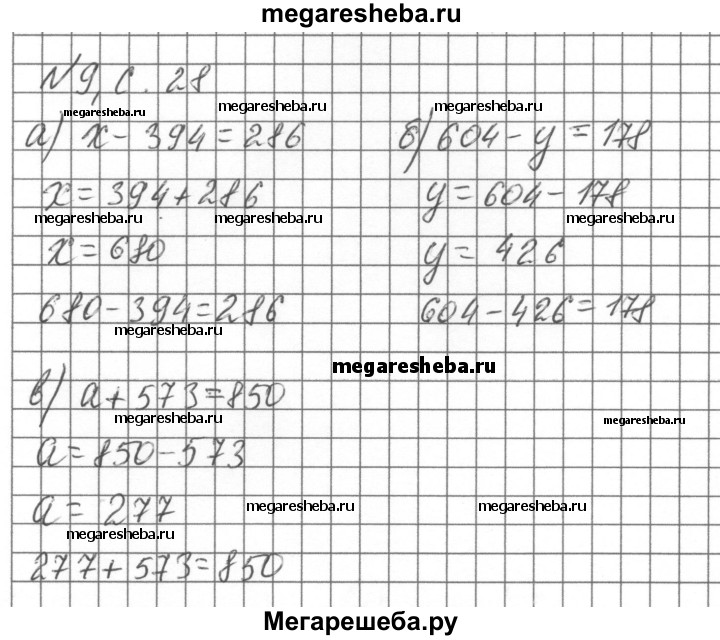 megaresheba.ru
N9, с. 28
megaresheba.ru megaresheba.ru megaresheba.ru
а) x - 394 = 286 б) 604 - y = 178
x = 394 + 286 y = 604 - 178
megaresheba.ru megaresheba.ru megaresheba.ru
x = 680 y = 426
680 - 394 = 286 604 - 426 = 178
megaresheba.ru
megaresheba.ru
в) a + 573 = 850
megaresheba.ru megaresheba.ru
a = 850 - 573
a = 277
megaresheba.ru megaresheba.ru
megaresheba.ru
277 + 573 = 850
Мегарешеба.ру